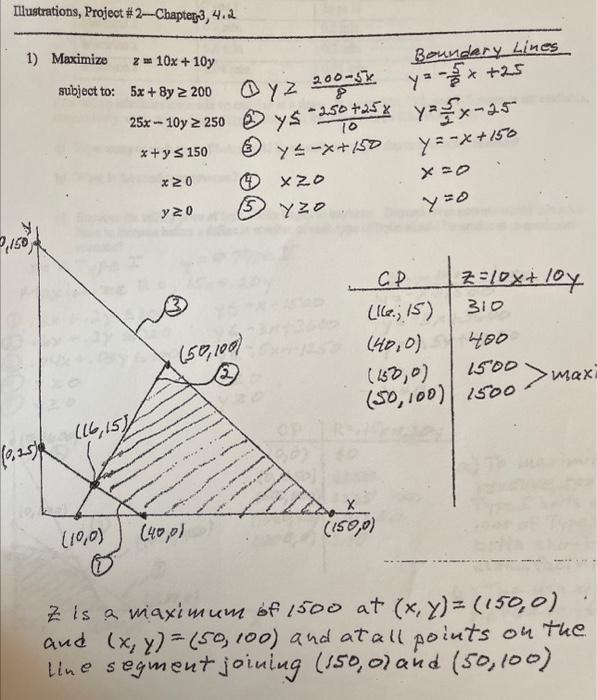 Illustrations, Project # 2—Chapter 3, 4.2
Boundary Lines
1) Maximize z = 10x + 10y
subject to: 5x + 8y ≥ 200 ① y ≥ (200-5x)/8 y = -5/8 x + 25
25x – 10y ≥ 250 ② y ≤ (-250+25x)/10 y = 5/2 x - 25
x + y ≤ 150 ③ y ≤ -x+150 y = -x + 150
x ≥ 0 ④ x ≥ 0 x = 0
y ≥ 0 ⑤ y ≥ 0 y = 0
y
0,150)
③
CP z = 10x + 10y
(16, 15) 310
(50,100)
②
(40,0) 400
(150,0) 1500
> maxi
(50,100) 1500
(16,15)
(0,25)
x
(10,0) (40,0) (150,0)
①
Z is a maximum of 1500 at (x, y) = (150,0)
and (x, y) = (50, 100) and at all points on the
line segment joining (150,0) and (50,100)